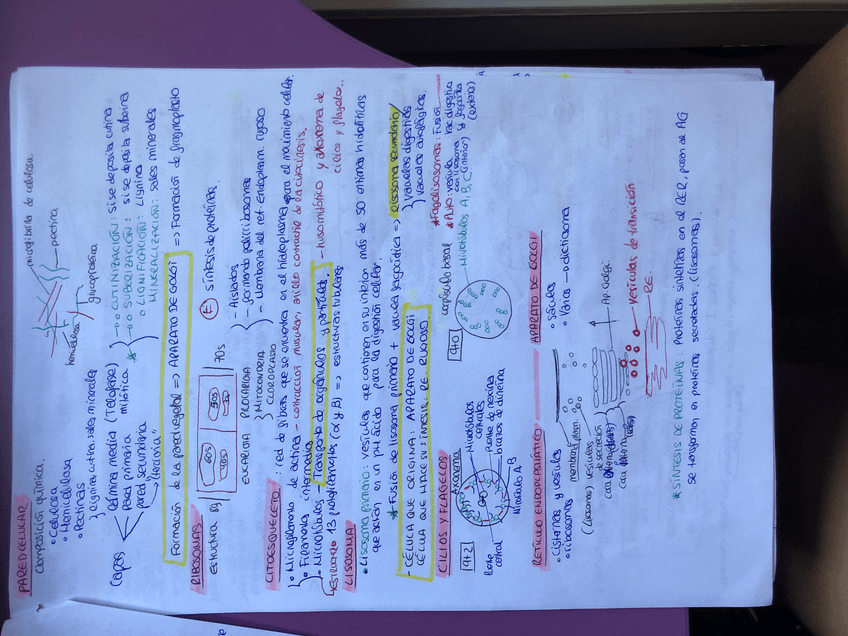 PARED CELULAR
Composición química.
• Celulosa
• Hemicelulosa
• Pectinas
} lignina, cutina, sales minerales
microfibrilla de celulosa.
pectina
hemicelulosa
glucoproteína
Capas
lámina media (Telofase)
Pared primaria mitótica
pared secundaria
"leñosa"
* → ○ CUTINIZACIÓN: si se deposita cutina
→ ○ SUBERIZACIÓN: si se deposita suberina
○ LIGNIFICACIÓN: lignina
MINERALIZACIÓN: sales minerales
Formación de la pared vegetal => APARATO DE GOLGI => Formación de fragmoplasto
RIBOSOMAS
estructura 80s
60s
40s
50s
30s
70s
(F) síntesis de proteínas.
EUCARIOTA
PROCARIOTA
MITOCONDRIA
CLOROPLASTO
- Aislados
- formando polirribosomas
- Membrana del ret. endoplasm. rugoso
CITOESQUELETO: red de fibras que se encuentra en el hialoplasma para el movimiento celular.
• Microfilamento de actina - contracción muscular, anillo contráctil de la citocinesis,
• Filamentos intermedios
- Microtúbulos - Transporte de orgánulos y partículas. - huso mitótico y axonema de cilios y flagelos..
estructura 13 protofilamentos (α y β) => estructuras tubulares
LISOSOMA
• Lisosoma primario: vesículas que contienen en su interior más de 50 enzimas hidrolíticas
que actúa a un pH ácido para la digestión celular.
* Fusión de lisosoma primario + vacuola fagocítica => lisosoma secundario /
} vacuolas digestivas
vacuolas autofágicas.
- CÉLULA QUE ORIGINA: APARATO DE GOLGI
CÉLULA QUE HACE SU SÍNTESIS: RE. RUGOSO
* Fagolisosomas: fusión
* Auto: vesícula con lisosoma
(interior)
(externa)
CILIOS Y FLAGELOS
9+2
Axonema
Microtúbulos centrales
Puente de nexina
brazos de dineína
Microtúbulo A B
central
9+0
corpúsculo basal
Microtúbulos A, B, C
RETÍCULO ENDOPLASMÁTICO
• cisternas y vesículas
• ribosomas
APARATO DE GOLGI
• Sáculos
• Varios → dictiosoma
(lisosomas) vesículas de secreción
Ap. Golgi.
vesículas de transición
RE.
* SÍNTESIS DE PROTEÍNAS: Proteínas sintetizan en el RER, pasan al AG
se transforman en proteínas secretadas. (lisosomas).